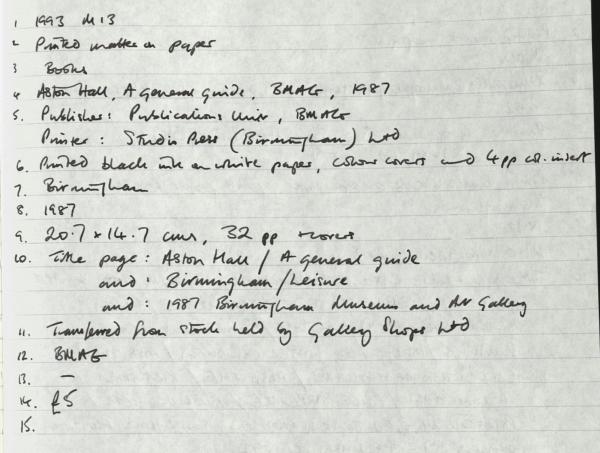 1 1993 M13
2 Printed matter on paper
3 Books
4 Aston Hall, A general guide, BMAG, 1987
5. Publisher: Publications Unit, BMAG
Printer: Studio Press (Birmingham) Ltd
6. Printed black ink on white paper, colour covers and 4pp col. insert
7. Birmingham
8. 1987
9. 20.7 x 14.7 cms, 32 pp + covers
10. Title page: Aston Hall / A general guide
and: Birmingham / Leisure
and: 1987 Birmingham Museums and Art Gallery
11. Transferred from stock held by Gallery Shops Ltd
12. BMAG
13. —
14. £5
15.